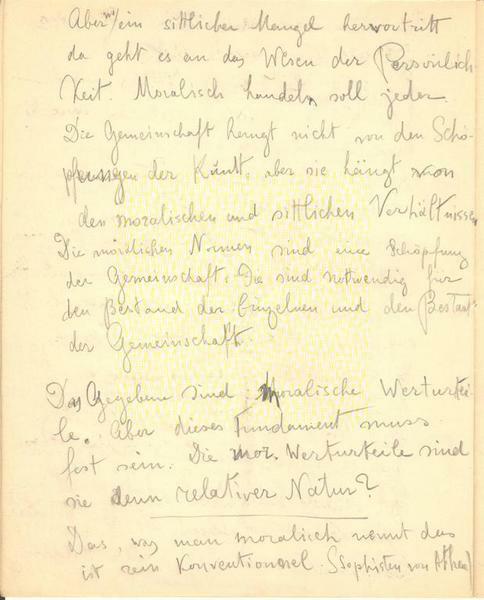 Aber wo ein sittlicher Mangel hervortritt
da geht es an das Wesen der Persönlich
keit. Moralisch handeln soll jeder.
Die Gemeinschaft hengt nicht von den Schö-
pfungen der Kunst, aber sie hängt von
den moralischen und sittlichen Verhältnissen
Die Normen sind eine Schöpfung
der Gemeinschaft. Die sind notwendig für
den Bestand der Einzelnen und den Bestand
der Gemeinschaft.
Das Gegebene sind: Moralische Werturtei-
le. Aber dieses Fundament muss
fest sein. Die mor. Werturteile sind
sie denn relativer Natur?
Das, was man moralisch nennt das
ist rein Konventionel. (Sophisten von Athen)